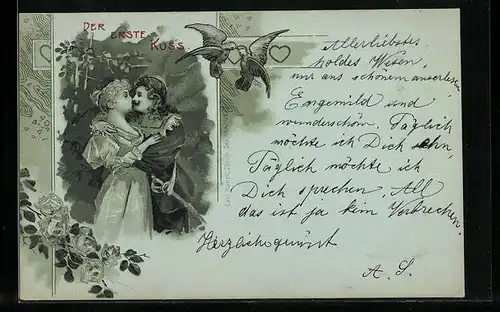 DER ERSTE KUSS
Allerliebstes
holdes Wesen,
mir aus schönem auserlesen
Engemild und
wunderschön. Täglich
möchte ich Dich sehn,
Täglich möchte ich
Dich sprechen. All
das ist ja kein Verbrechen.
Herzlichs
A. S.